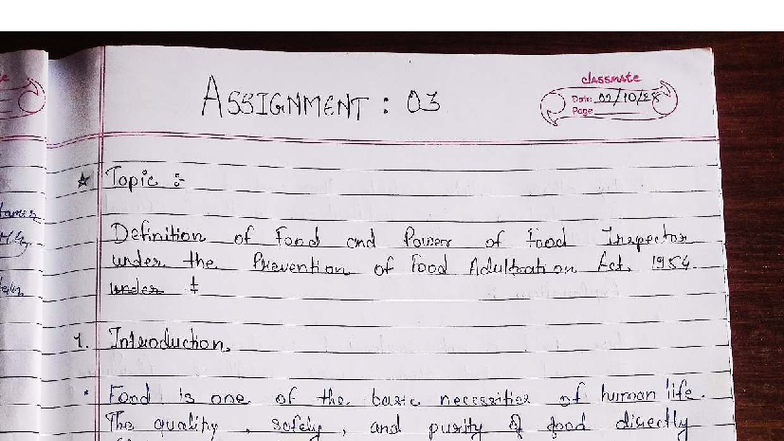 classmate
ASSIGNMENT : 03
Date
Page
Topic :-
Definition of Food and Power of Food Inspector
under the Prevention of Food Adultration Act, 1954
under t
1. Introduction,
Food is one of the basic necessities of human life.
The quality, safety, and purity of food directly